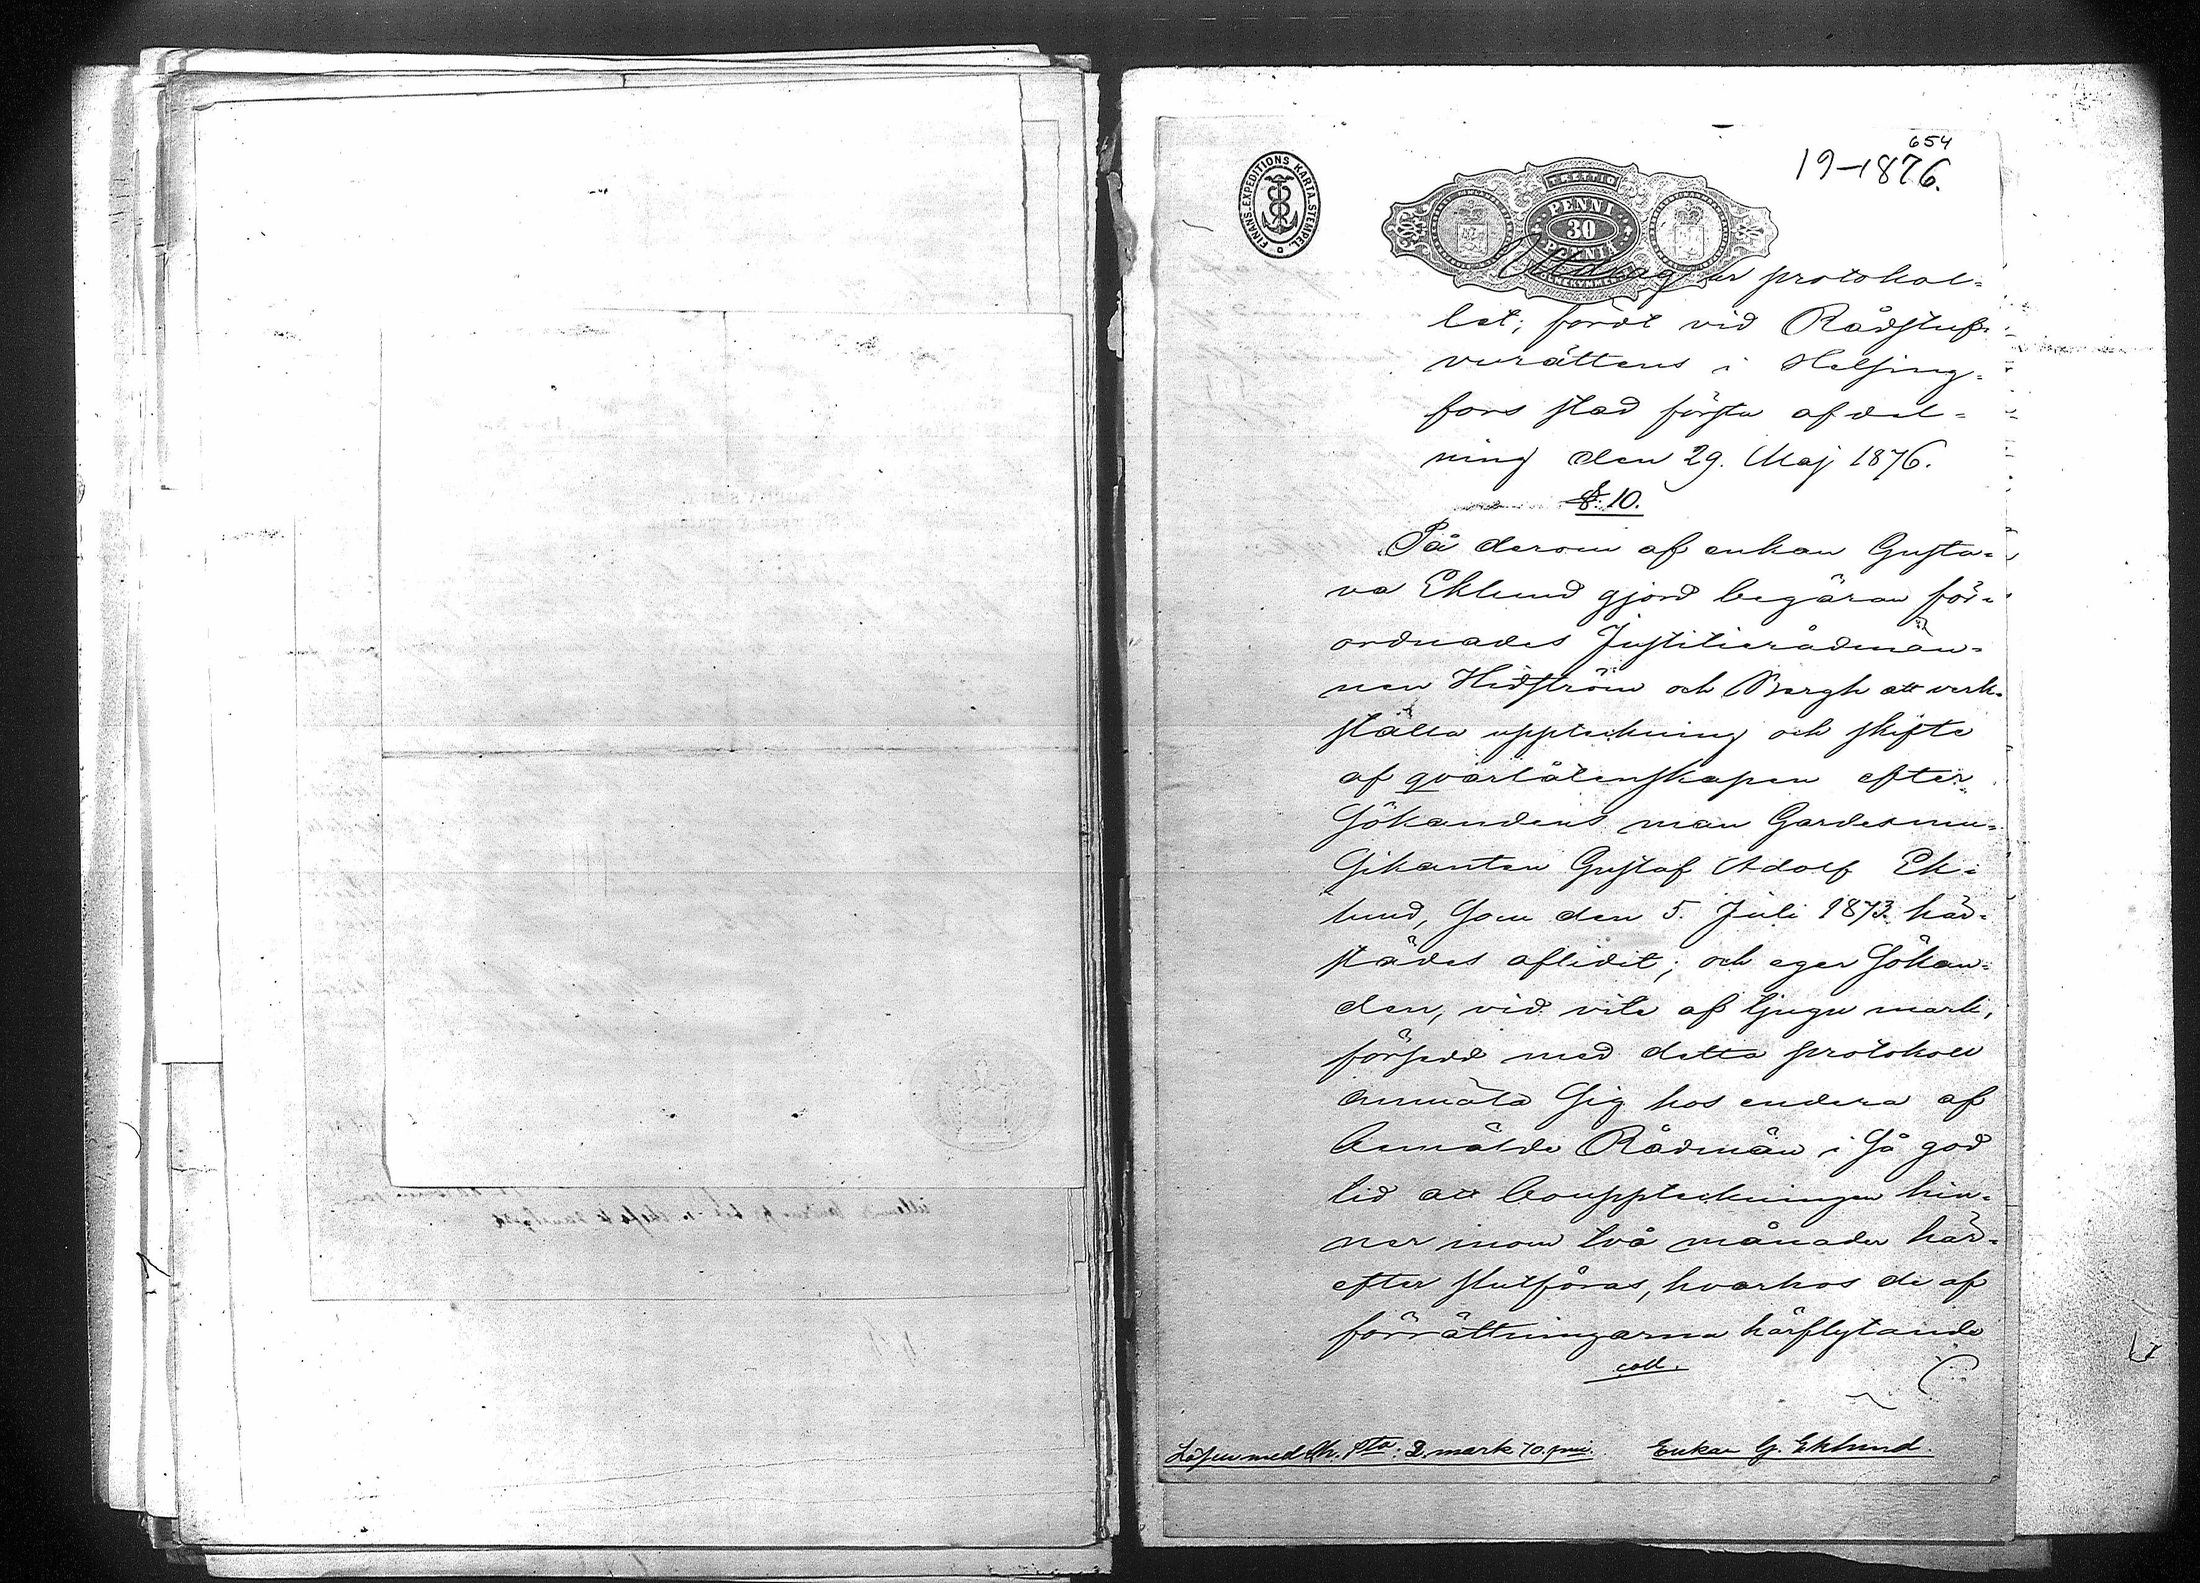 654
19-1876.
FINANS-EXPEDITIONS KARTA STEMPEL
TRETTIO
PENNI
30
PENNIÄ
Utdrag ur protokol-
let, fördt vid Rådstufv-
vurättens i Helsing-
fors stad första afdel-
ning den 29. Maj 1876.
§. 10.
På derom af enkan Gusta-
va Eklund gjord begäran för-
ordnades Justitierådmän-
nen Hedström och Bergh att verk-
ställa uppteckning och skifte
af qvarlåtenskapen efter
sökandens man Gardesmu-
sikanten Gustaf Adolf Ek-
lund, som den 5. Juli 1873 här-
städes aflidit; och eger sökan-
den, vid vite af tjugu mark,
försedd med detta protokoll
anmäla sig hos endera af
bemälde Rådmän i så god
tid att bouppteckningen hin-
ner inom två månader här-
efter slutföras, hvarhos de af
förrättningarna härflytande
coll.
Lösen med Ch. Sta: 2 mark 70 pni.
Enkan G. Eklund.